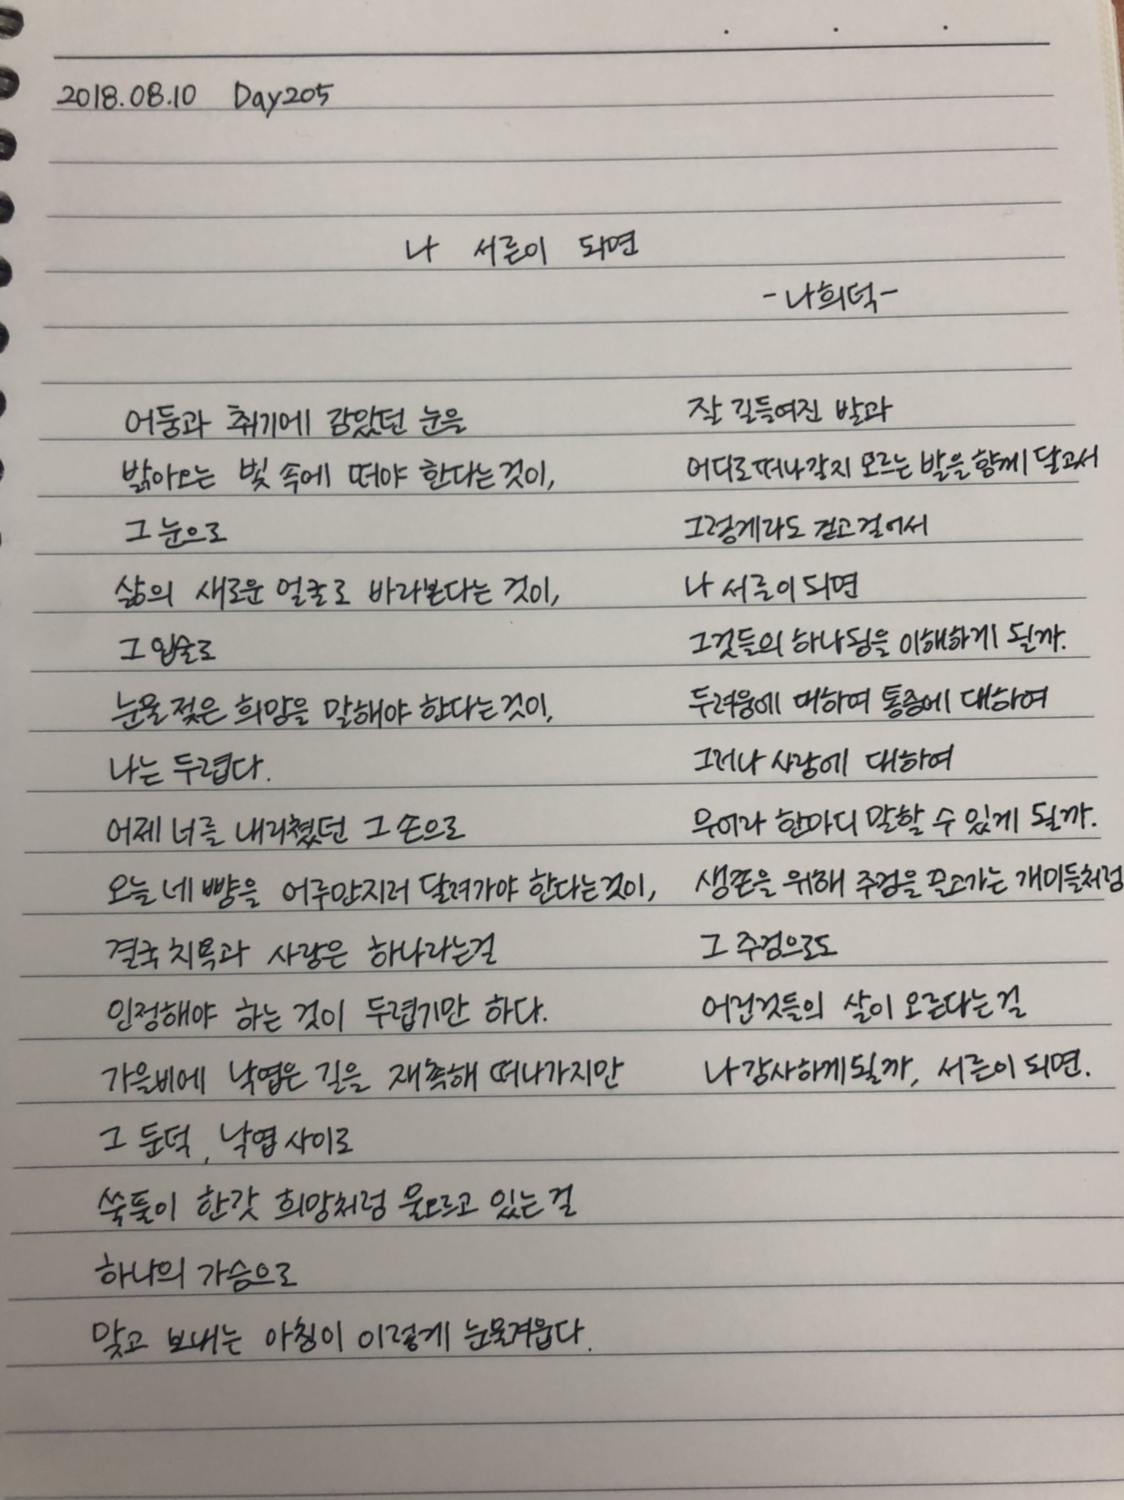 2018.08.10 Day205
나 서른이 되면
-나희덕-
어둠과 취기에 감았던 눈을
밝아오는 빛 속에 떠야 한다는것이,
그 눈으로
삶의 새로운 얼굴로 바라본다는 것이,
그 입술로
눈물 젖은 희망을 말해야 한다는것이,
나는 두렵다.
어제 너를 내리쳤던 그 손으로
오늘 네 뺨을 어루만지러 달려가야 한다는것이,
결국 치욕과 사랑은 하나라는걸
인정해야 하는 것이 두렵기만 하다.
가을비에 낙엽은 길을 재촉해 떠나가지만
그 둔덕, 낙엽 사이로
쑥풀이 한갓 희망처럼 물오르고 있는 걸
하나의 가슴으로
맞고 보내는 아침이 이렇게 눈물겨웁다.
잘 길들여진 발과
어디로 떠나갈지 모르는 발을 함께 달고서
그렇게라도 걷고 걸어서
나 서른이 되면
그것들의 하나됨을 이해하게 될까.
두려움에 대하여 통증에 대하여
그러나 사랑에 대하여
무어라 한마디 말할 수 있게 될까.
생존을 위해 주검을 끌고가는 개미들처럼
그 주검으로도
어린것들의 살이 오른다는 걸
나 감사하게 될까, 서른이 되면.